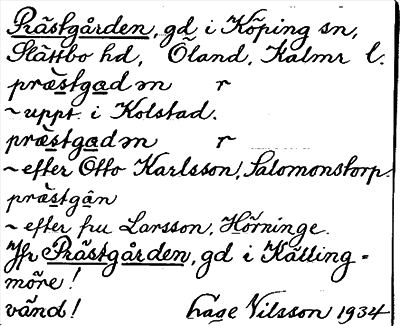 Prästgården, gd i Köping sn,
Slättbo hd, Öland, Kalmr l.
præstgadɘn r
~ uppt. i Kolstad.
præstgadɘn r
~ efter Otto Karlsson, Salomonstorp.
præstgân
~ efter fru Larsson, Hörninge.
Jfr Prästgården, gd i Källing=
möre!
vänd! Åage Nilsson 1934